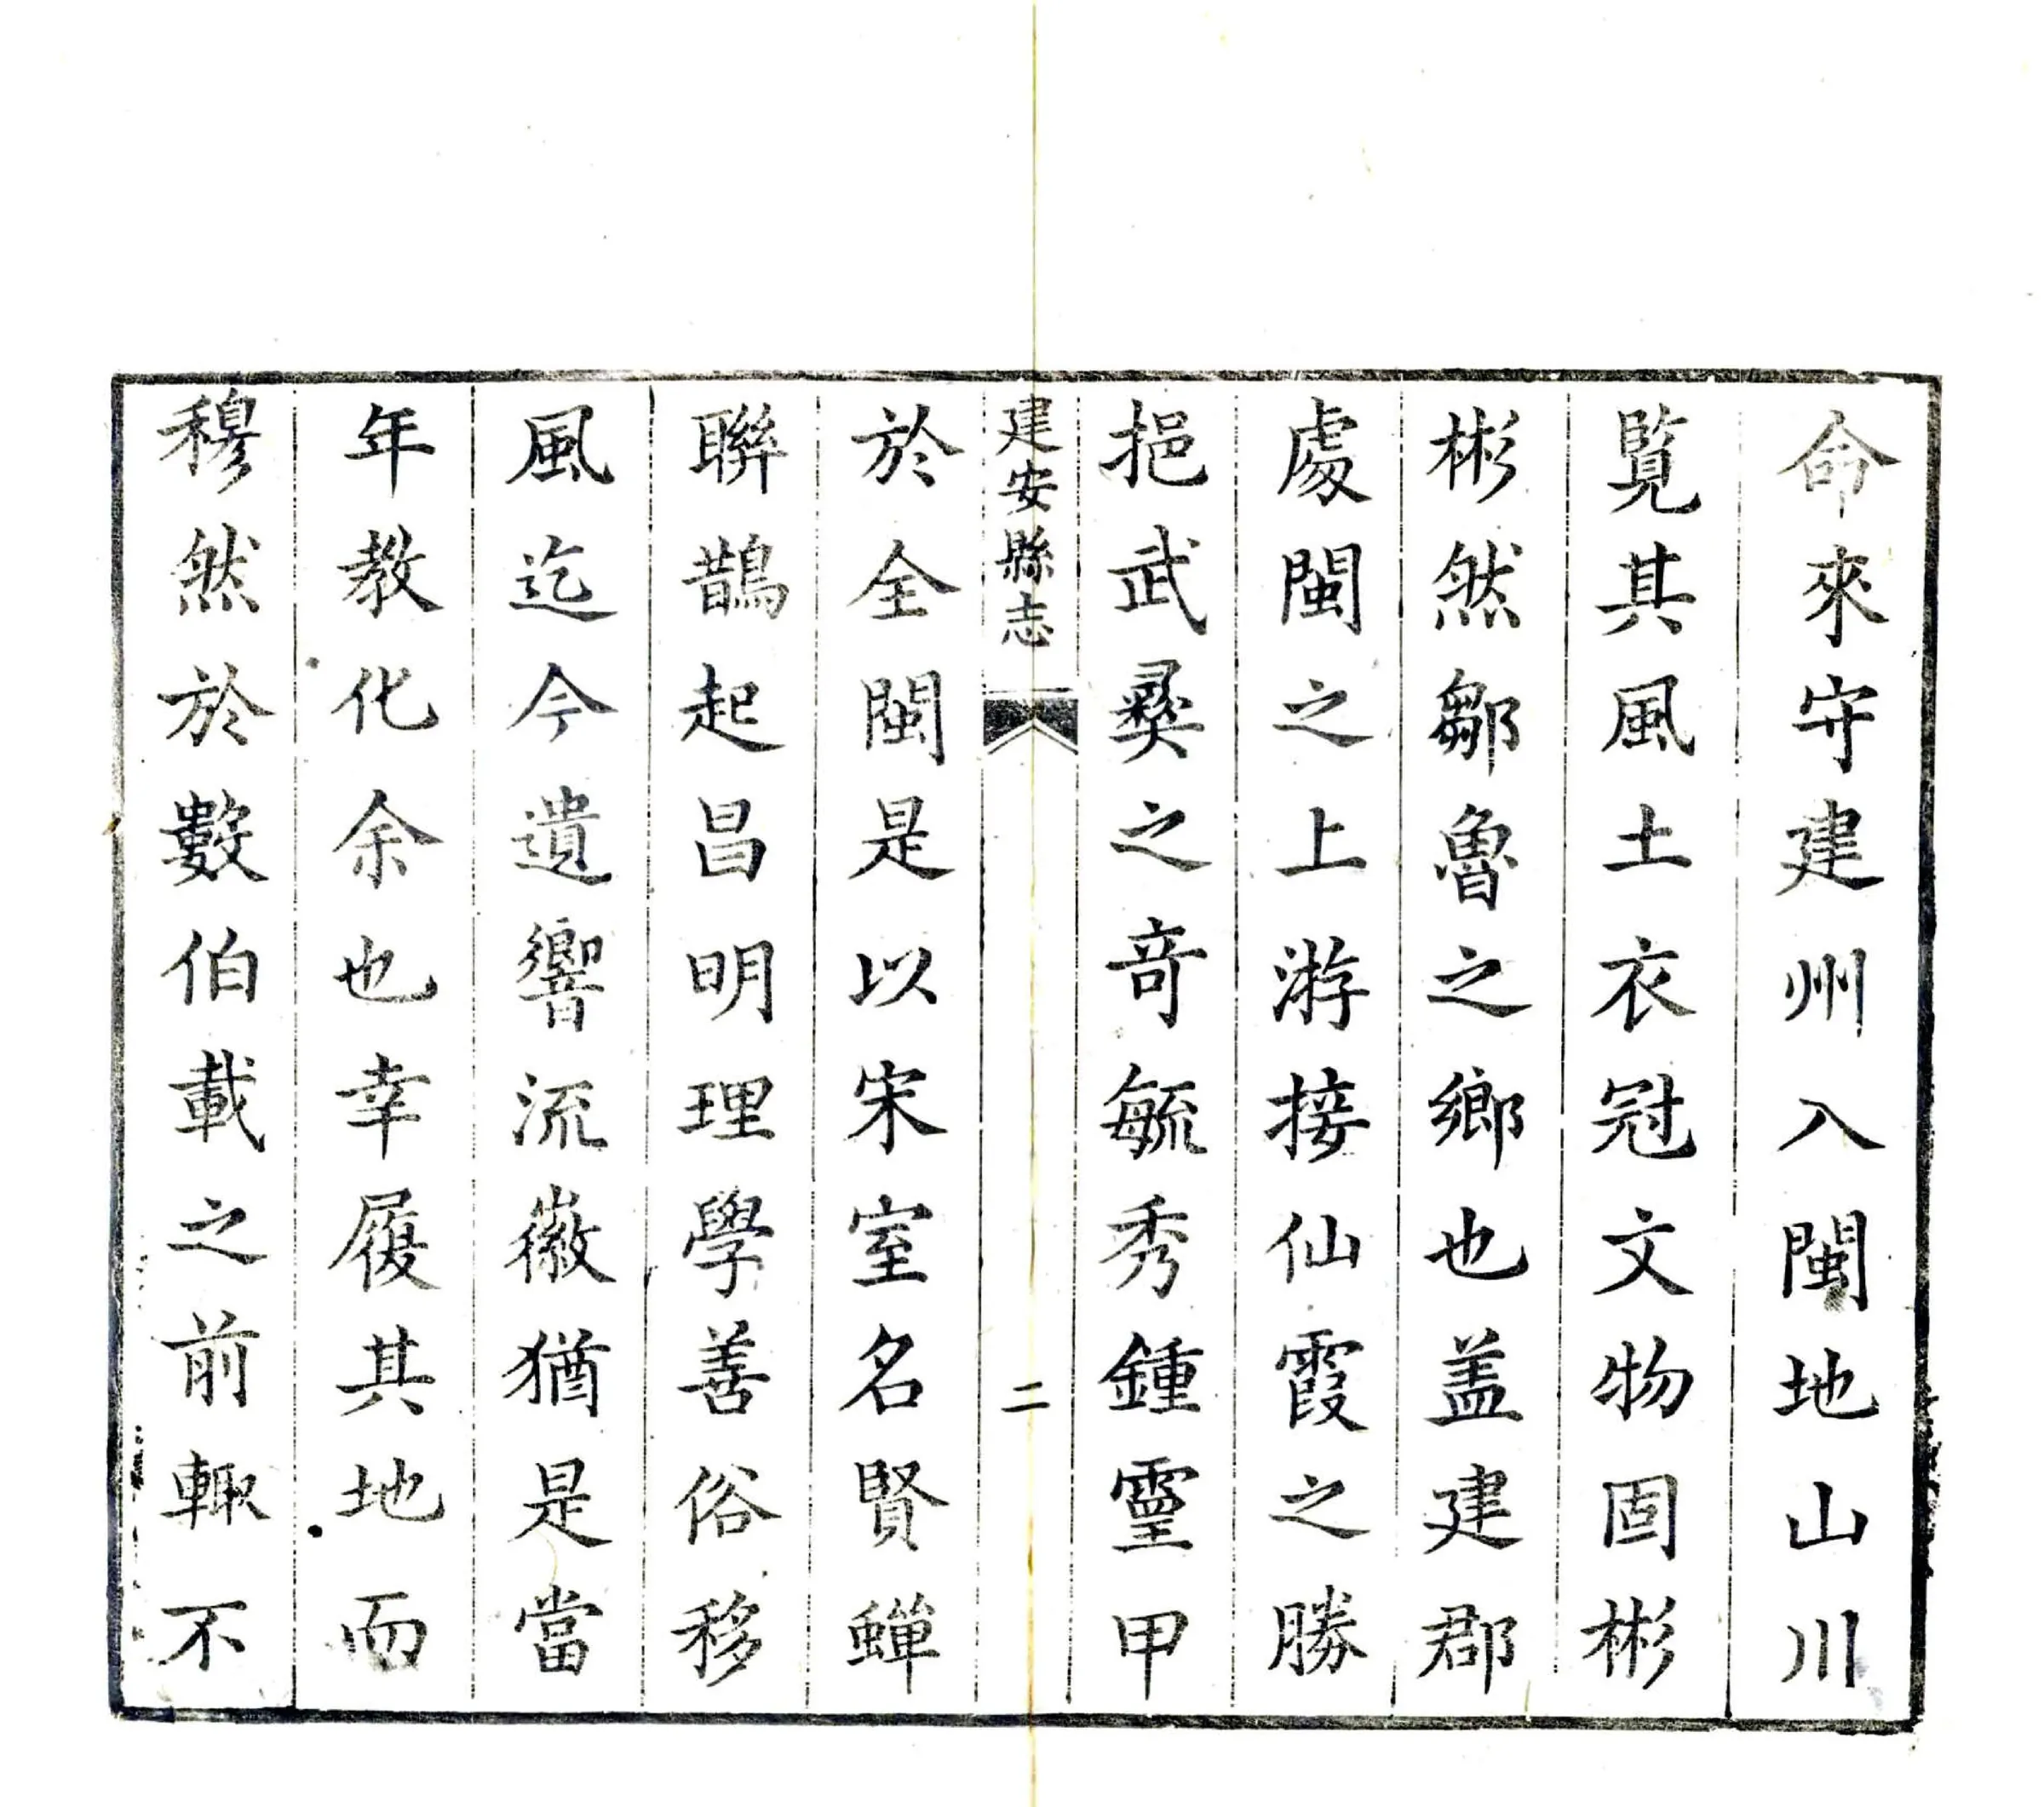 命來守建州入閩地山川
覧其風土衣冠文物固彬
彬然鄒魯之鄉也盖建郡
處閩之上游接仙霞之勝
挹武彛之竒毓秀鍾靈甲
建安縣志
二
於全閩是以宋室名賢蟬
聯鵲起昌明理學善俗移
風迄今遺響流徽猶是當
年教化余也幸履其地而
穆然於數伯載之前輙不